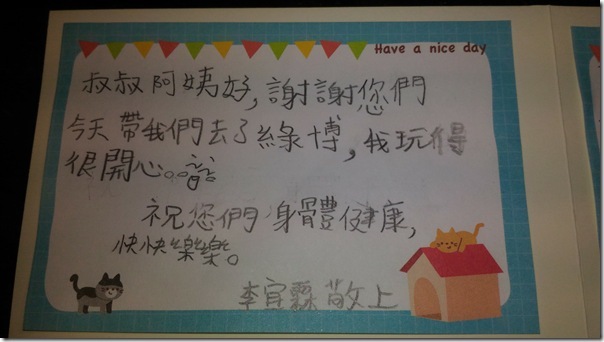 Have a nice day
叔叔阿姨好,謝謝您們
今天帶我們去了綠博,我玩得
很開心。
祝您們身體健康,
快快樂樂。
李宜霖敬上